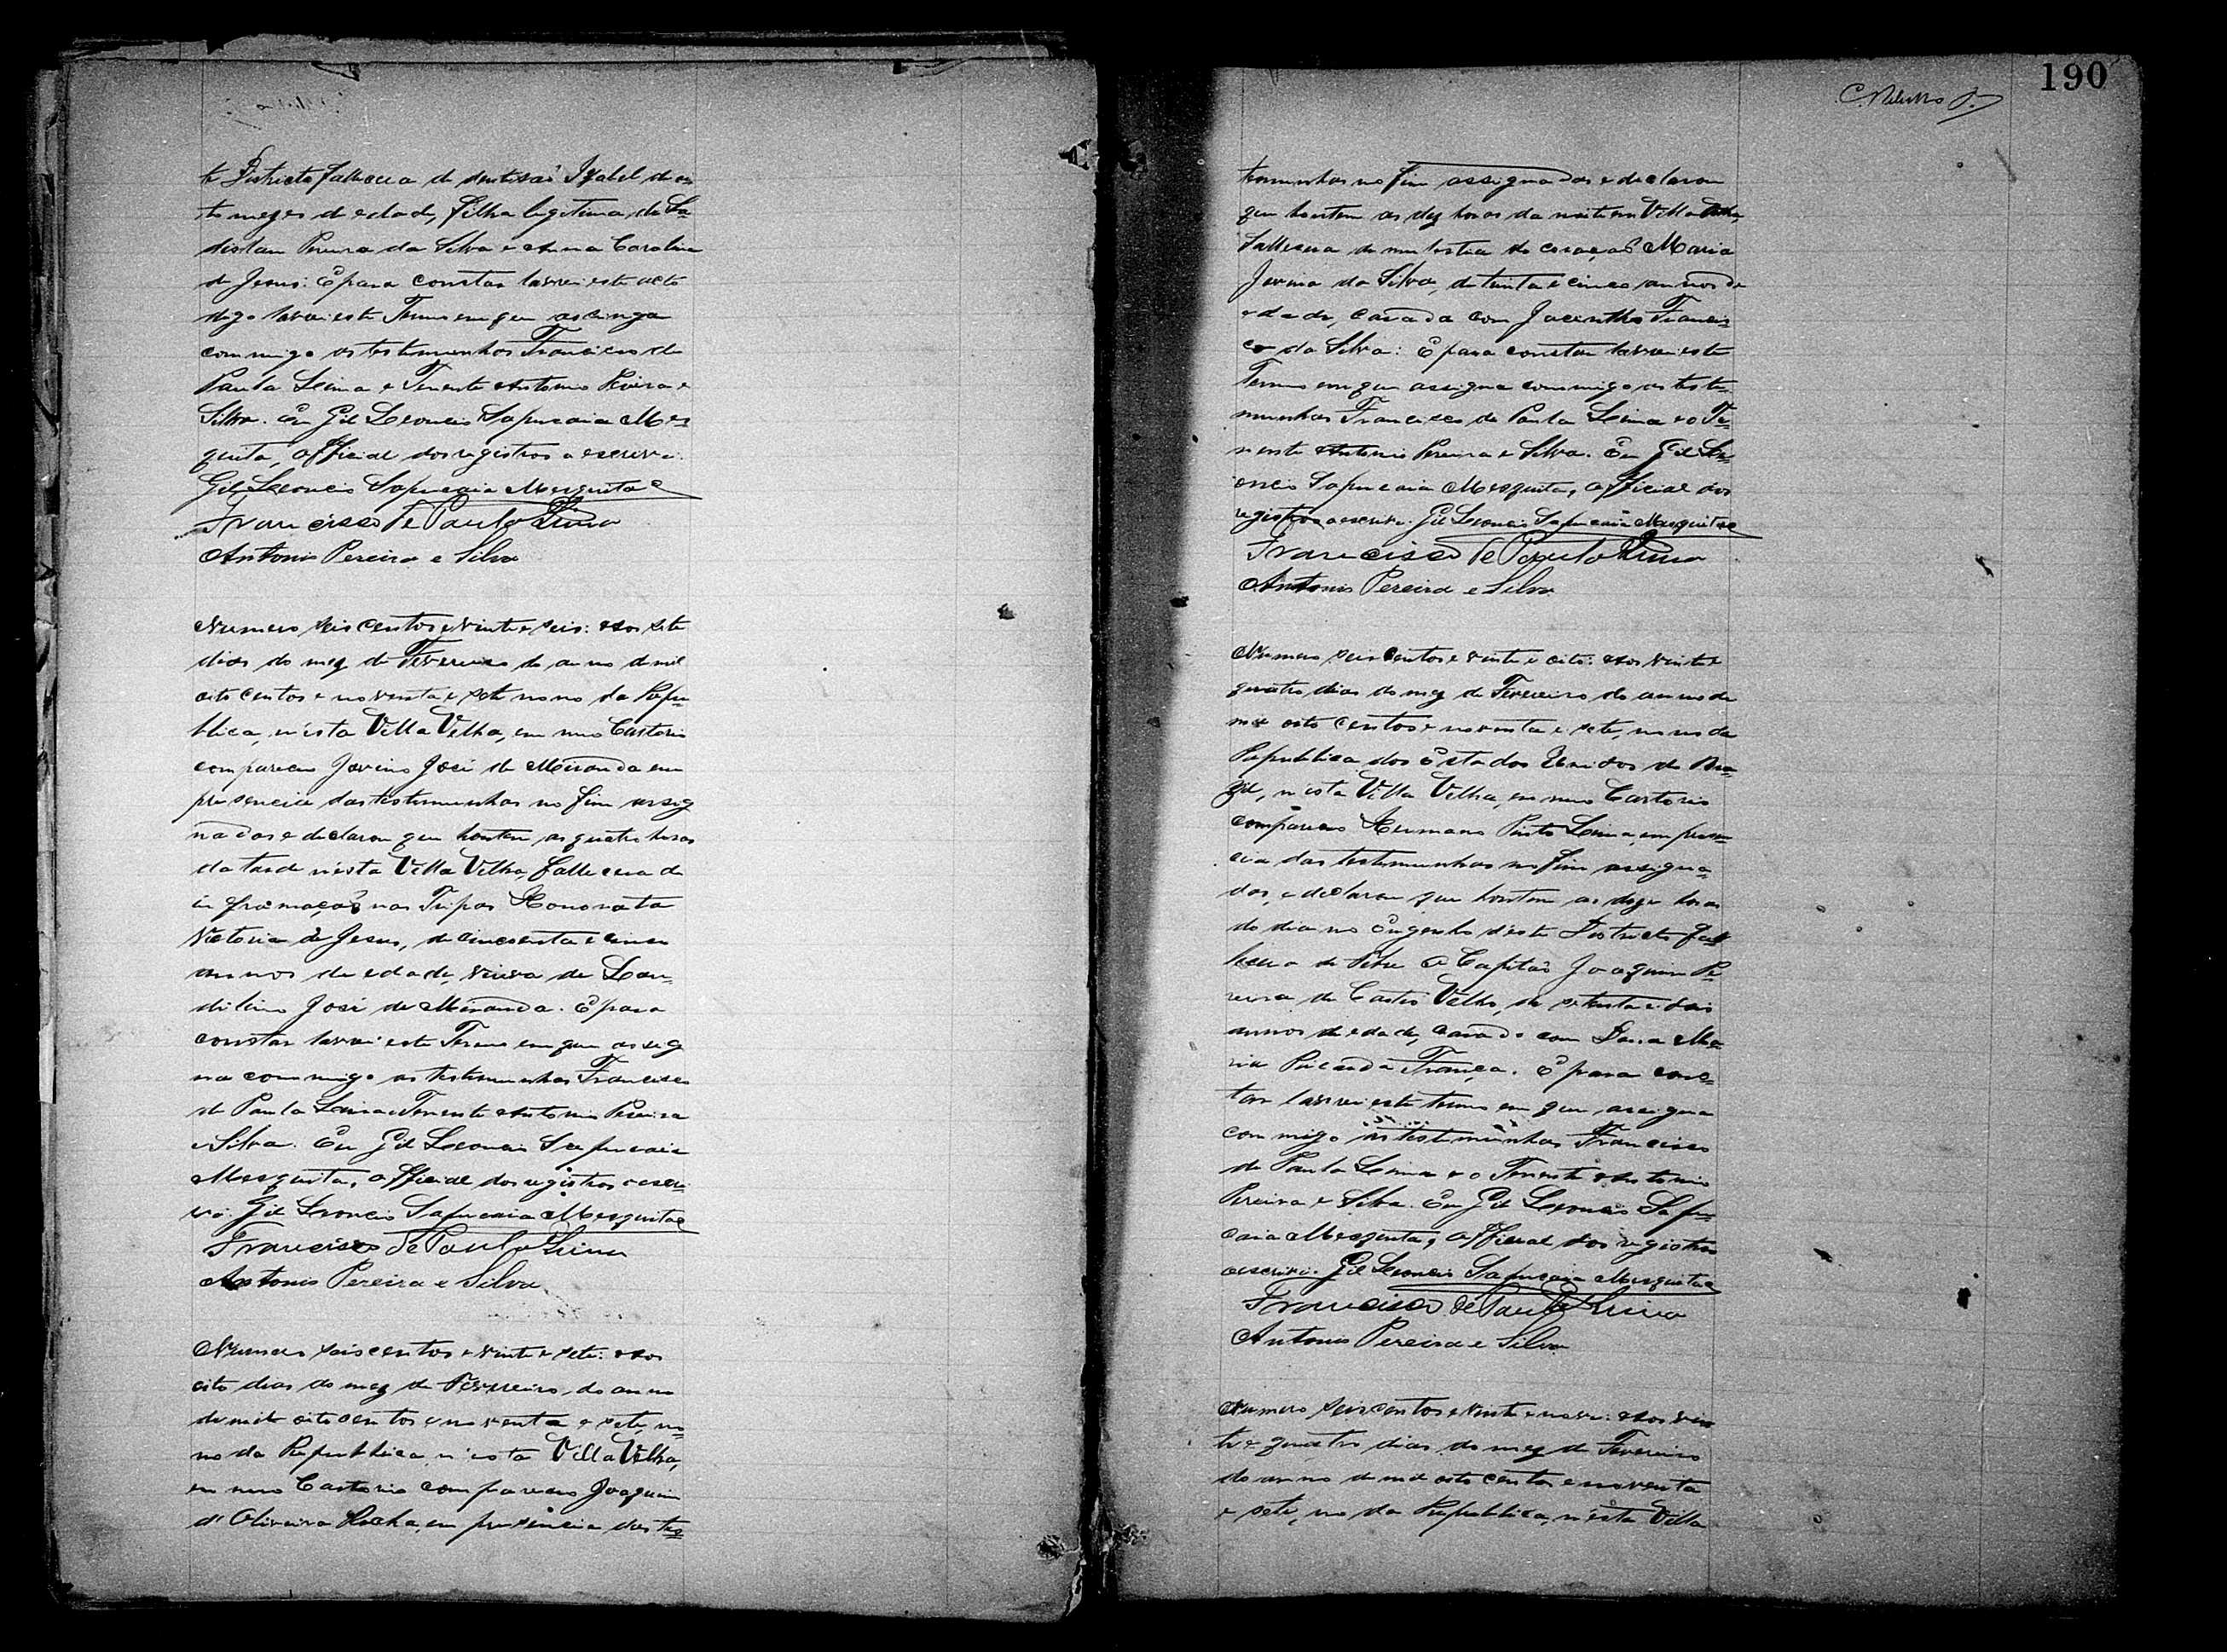 te Districto falleceu de dentisaõ Izabel de oi
to mezes de edade, filha legitima de La
dislau Pereira da Silva e Anna Carolina
de Jesus: E para constar lavrei este acto
digo lavrei este Termo em que assigna
commigo as testemunhas Francisco de
Paula Lima e Tenente Antonio Pereira e
Silva. Eu Gil Leoncio Sapucaia Mes
quita, official dos registros o escrevi.
Gil Leoncio Sapucaia Mesquita
Francisco de Paula Lima
Antonio Pereira e Silva
Numero seis centos e vinte e seis: Aos sete
dias do mez de Fevereiro do anno de mil
oito centos e noventa e sete nono da Repu-
blica, n'esta Villa Velha, em meo Cartorio
compareceo Jovino José de Miranda em
presencia das testemunhas no fim assig
nadas e declarou que hontem as quatro horas
da tarde n'esta Villa Velha, falleceu de
inframaçaõ nas Tripas Honorata
Victoria de Jesus, de cincoenta e cinco
annos de edade, viuva de Lau-
dilino José de Miranda. E para
constar lavrei este Termo em que assig
na commigo as testemunhas Francisco
de Paula Lima e Tenente Antonio Pereira
e Silva. Eu Gil Leoncio Sapucaia
Mesquita, official dos registros o escre
vi. Gil Leoncio Sapucaia Mesquita
Francisco de Paula Lima
Antonio Pereira e Silva
Numero seis centos e vinte e sete: Aos
oito dias do mez de Fevereiro, do anno
de mil oito centos e noventa e sete, no-
no da Republica, n'esta Villa Velha,
em meo Cartorio compareceo Joaquim
d' Oliveira Rocha, em presencia das tes-
190
temunhas no fim assignadas e declarou
que hontem as dez horas da noite em Villa Velha,
falleceu de molestia do coraçaõ Maria
Jovina da Silva, de trinta e cinco annos de
edade, casada com Jacintho Francis-
co da Silva: E para constar lavrei este
Termo em que assigna commigo as teste-
munhas Francisco de Paula Lima e o Te-
nente Antonio Pereira e Silva. Eu Gil Le-
oncio Sapucaia Mesquita, official dos
registros o escrevi. Gil Leoncio Sapucaia Mesquita
Francisco de Paula Lima
Antonio Pereira e Silva
Numero seis centos e vinte e oito: Aos vinte e
quatro dias do mez de Fevereiro do anno de
mil oito centos e noventa e sete, nono da
Republica dos Estados Unidos do Bra-
zil, n'esta Villa Velha, em meo Cartorio
compareceo Hermano Pinto Lima, em presen-
cia das testemunhas no fim assigna-
das, e declarou que hontem as doze horas
do dia no Engenho d'este Districto fal
leceu de febre O Capitaõ Joaquim Pe
reira de Castro Velho, de setenta e dois
annos de edade, casado com Dona Ma
ria França. E para cons-
tar lavrei este termo em que assigna
commigo as testemunhas Francisco
de Paula Lima e o Tenente Antonio
Pereira e Silva. Eu Gil Leoncio Sapu-
caia Mesquita, official dos registros
o escrevi. Gil Leoncio Sapucaia Mesquita
Francisco de Paula Lima
Antonio Pereira e Silva
Numero seis centos e vinte e nove: Aos vin
te e quatro dias do mez de Fevereiro
do anno de mil oito centos e noventa
e sete, no da Republica, n'esta Villa